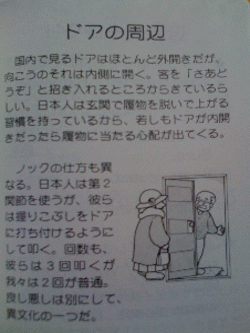 ドアの周辺
国内で見るドアはほとんど外開きだが、
向こうのそれは内側に開く。客を「さあど
うぞ」と招き入れるところからきているら
しい。日本人は玄関で履物を脱いで上がる
習慣を持っているから、若しもドアが内開
きだったら履物に当たる心配が出てくる。
ノックの仕方も異
なる。日本人は第２
関節を使うが、彼ら
は握りこぶしをドア
に打ち付けるように
して叩く。回数も、
彼らは３回叩くが
我々は２回が普通。
良し悪しは別にして、
異文化の一つだ。